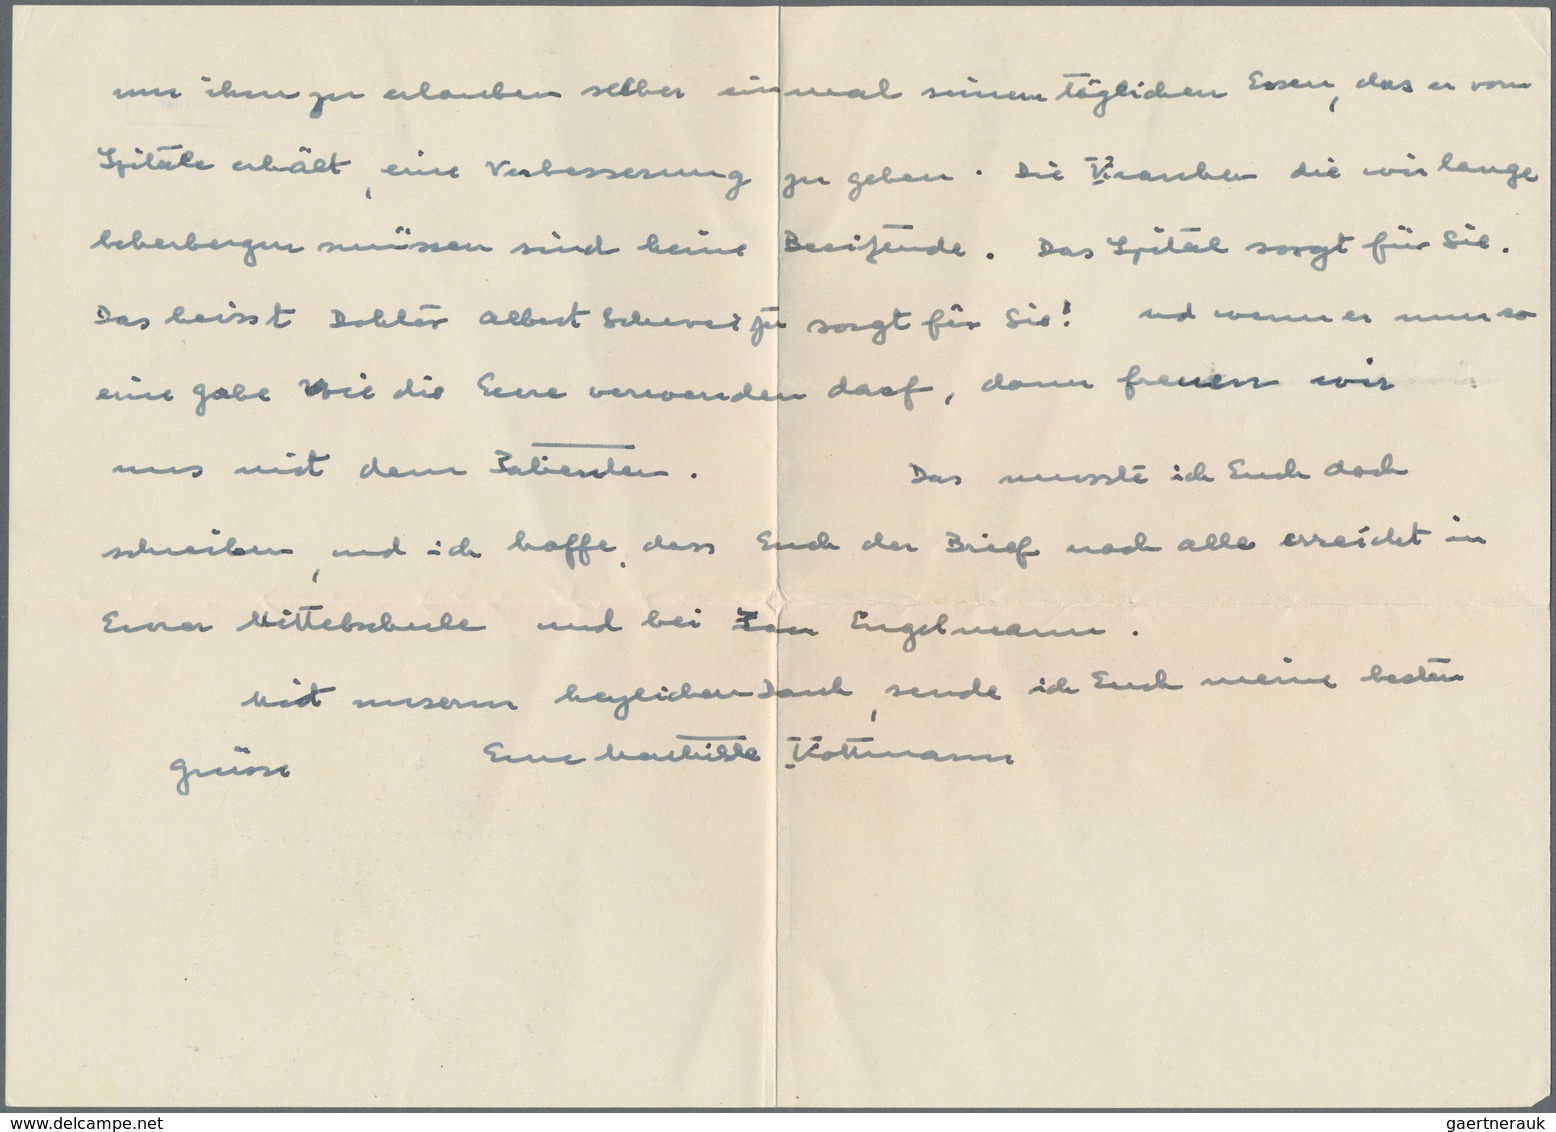 um ihm zu erlauben selber einmal seinem täglichen Essen, das er vom
Spitale erhält, eine Verbesserung zu geben. Die Kranken die wir lange
beherbergen müssen sind keine Besitzende. Das Spital sorgt für Sie.
Das heisst Doktor Albert Schweitzer sorgt für Sie! und wenn er nun so
eine Gabe wie die Eure verwenden darf, dann freuen wir
uns mit dem Patienten. Das musste ich Euch doch
schreiben, und ich hoffe, dass Euch der Brief noch alle erreicht in
Eurer Mittelschule und bei Engelmann.
Mit unserm herzlichen Dank, sende ich Euch meine besten
Grüsse Eure Mathilde Kottmann
gaertnerauk @ www.delcampe.net